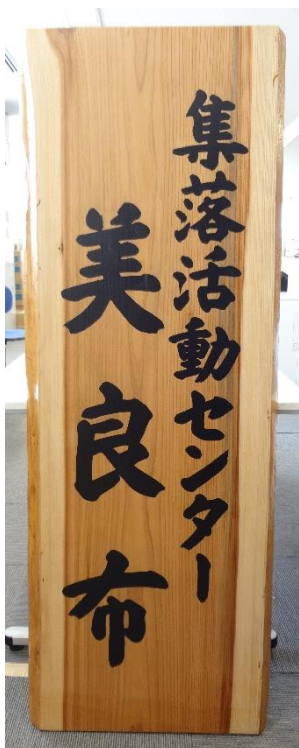 集落活動センター
美良布